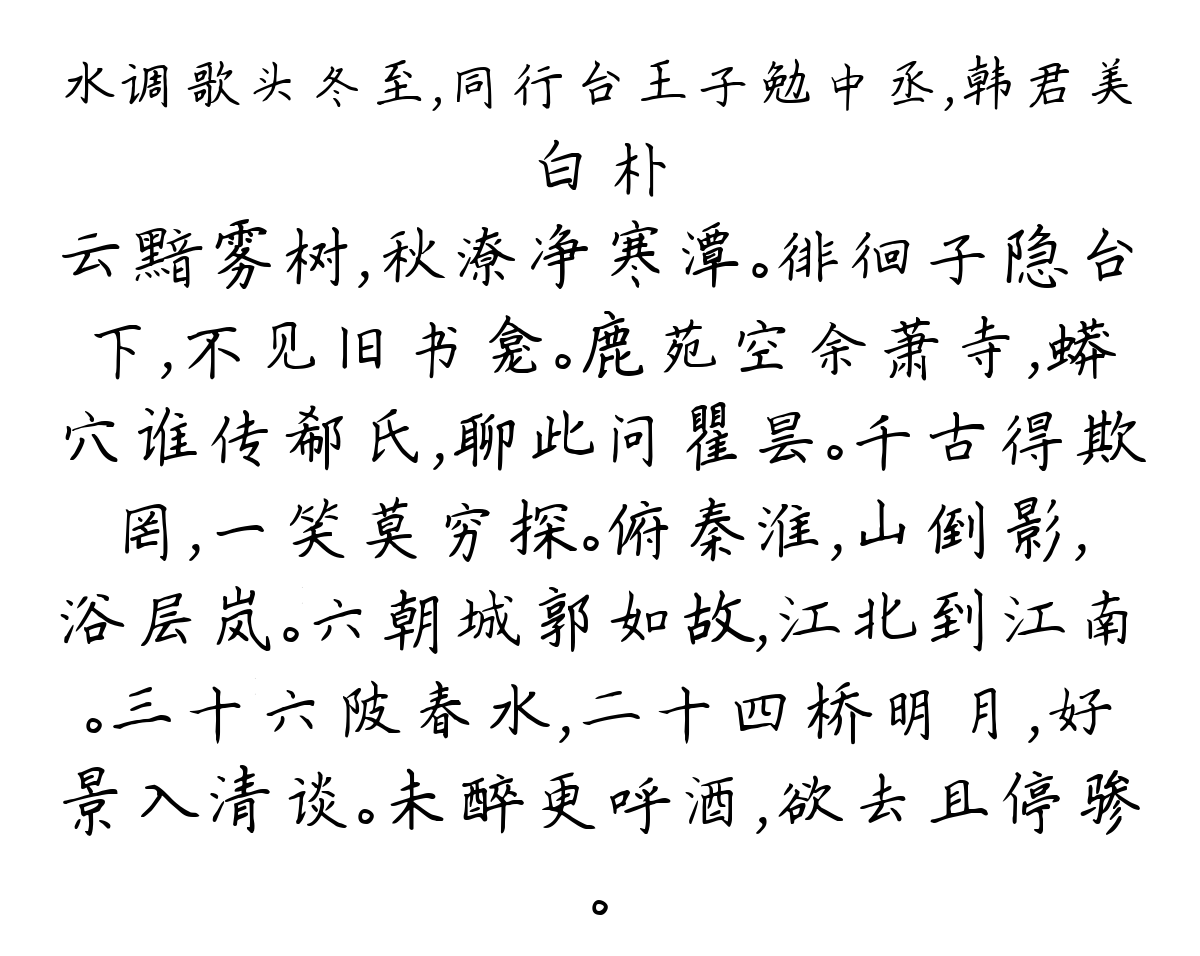 水调歌头冬至,同行台王子勉中丞,韩君美
白朴
云黯雾树,秋潦净寒潭。徘徊子隐台
下,不见旧书龛。鹿苑空余萧寺,蟒
穴谁传郗氏,聊此问瞿昙。千古得欺
罔,一笑莫穷探。俯秦淮,山倒影,
浴层岚。六朝城郭如故,江北到江南
。三十六陂春水,二十四桥明月,好
景入清谈。未醉更呼酒,欲去且停骖
。